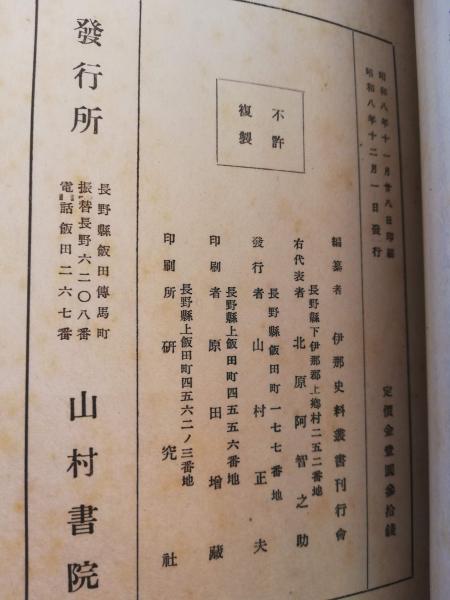 昭和八年十一月廿八日印刷
昭和八年十二月一日發行
定價金壹圓參拾錢
編纂者 伊那史料叢書刊行會
長野縣下伊那郡上鄕村二五二番地
右代表者 北原阿智之助
長野縣飯田町一七七番地
發行者 山村正夫
長野縣上飯田町四五五六番地
印刷者 原田增藏
長野縣上飯田町四五六二ノ三番地
印刷所 研究社
不許
複製
發行所
長野縣飯田傳馬町
振替長野六二〇八番
電話飯田二六七番
山村書院